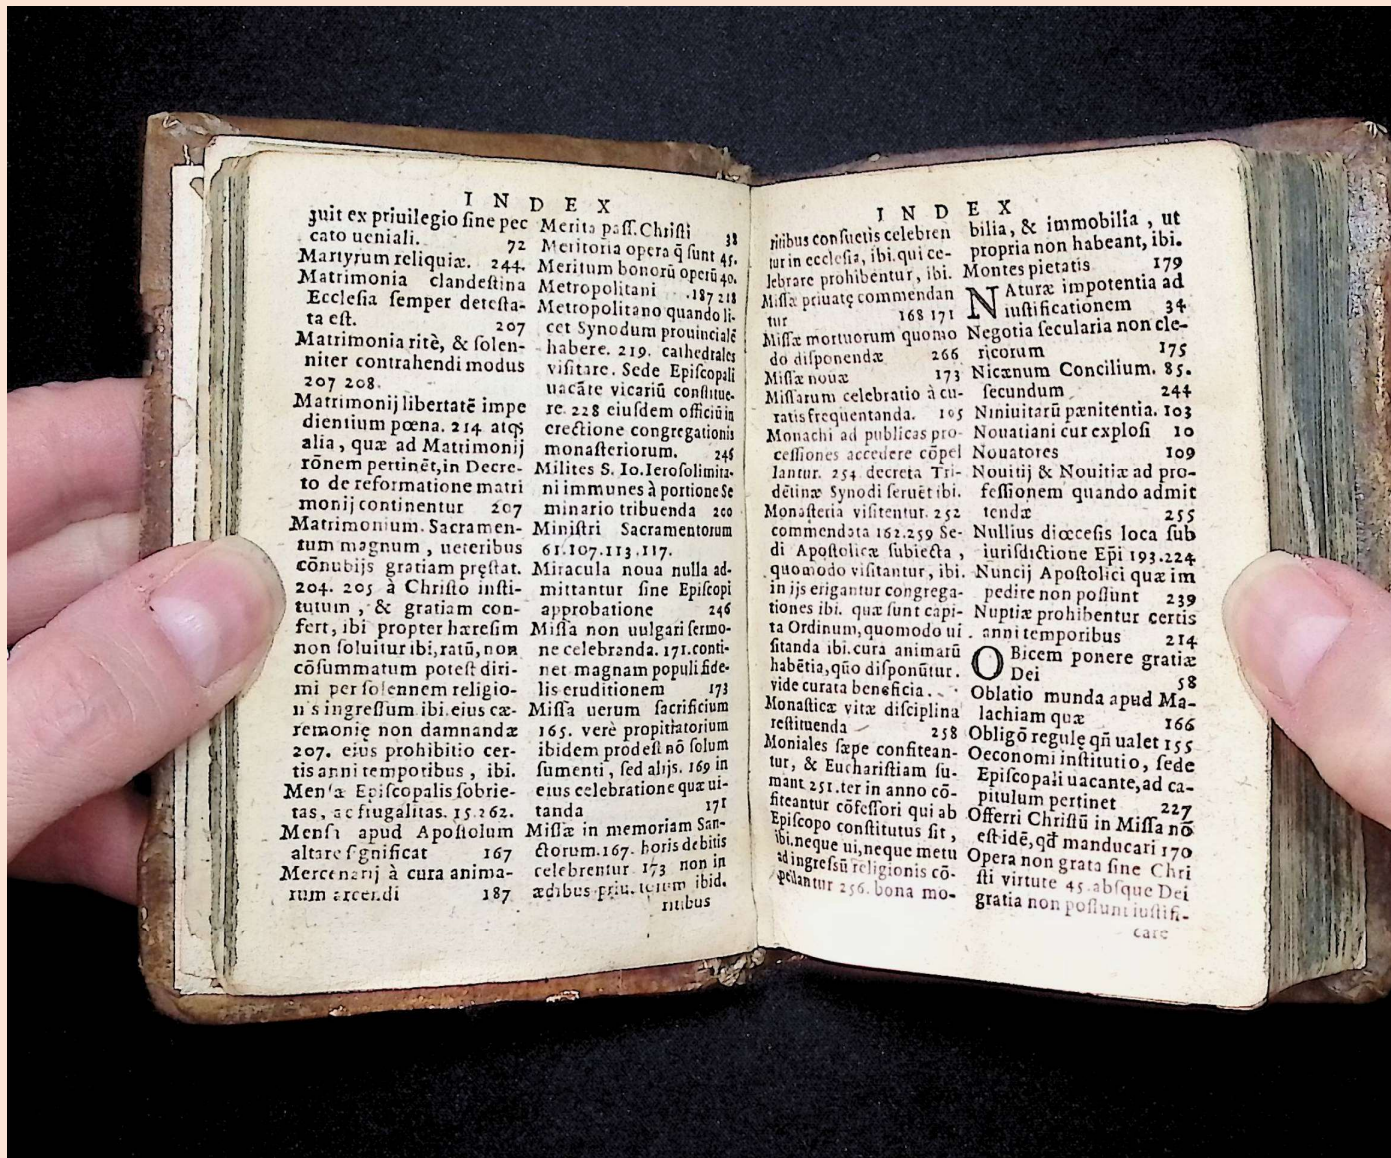 INDEX
ʒuit ex priuilegio ſine pec
cato ueniali. 72
Martyrum reliquiæ. 244.
Matrimonia clandeſtina
Eccleſia ſemper deteſta-
ta eſt. 207
Matrimonia ritè, & ſolen-
niter contrahendi modus
207 208.
Matrimonij libertatẽ impe
dientium pœna. 214 atqȝ
alia, quæ ad Matrimonij
rõnem pertinẽt, in Decre-
to de reformatione matri
monij continentur 207
Matrimonium. Sacramen-
tum magnum, ueteribus
cõnubijs gratiam pręſtat.
204. 205 à Chriſto inſti-
tutum, & gratiam con-
fert, ibi propter hæreſim
non ſoluitur ibi, ratũ, non
cõſummatum poteſt diri-
mi per ſolennem religio-
n s ingreſſum ibi. eius cæ-
remonię non damnandæ
207. eius prohibitio cer-
tis anni temporibus, ibi.
Men a Epiſcopalis ſobrie-
tas, ac frugalitas. 15.262.
Menſa apud Apoſtolum
altare ſignificat 167
Mercenarij à cura anima-
rum arcendi 187
Merita paſſ. Chriſti 38
Meritoria opera q̃ ſunt 45.
Meritum bonorũ operũ 40.
Metropolitani .187 218
Metropolitano quando li-
cet Synodum prouincialẽ
habere. 219. cathedrales
viſitare. Sede Epiſcopali
uacãte vicariũ conſtitue-
re. 228 eiuſdem officiũ in
erectione congregationis
monaſteriorum. 246
Milites S. Io. Ieroſolimita-
ni immunes à portione Se
minario tribuenda 200
Miniſtri Sacramentorum
61.107.113.117.
Miracula noua nulla ad-
mittantur ſine Epiſcopi
approbatione 246
Miſſa non uulgari ſermo-
ne celebranda. 171. conti-
net magnam populi fide-
lis eruditionem 173
Miſſa uerum ſacrificium
165. verè propitiatorium
ibidem prodeſt nõ ſolum
ſumenti, ſed alijs. 169 in
eius celebratione quæ ui-
tanda 171
Miſſæ in memoriam San-
ctorum. 167. horis debitis
celebrentur 173 non in
ædibus priu. ibid.
ritibus
INDEX
ritibus conſuetis celebren
tur in eccleſia, ibi. qui ce-
lebrare prohibentur, ibi.
Miſſæ priuatę commendan
tur 168 171
Miſſæ mortuorum quomo
do diſponendæ 266
Miſſæ nouæ 173
Miſſarum celebratio à cu-
ratis frequentanda. 105
Monachi ad publicas pro-
ceſſiones accedere cõpel
lantur. 254 decreta Tri-
dẽtinæ Synodi ſeruẽt ibi.
Monaſteria viſitentur. 252
commendata 162.259 Se-
di Apoſtolicæ ſubiecta,
quomodo viſitantur, ibi.
in ijs erigantur congrega-
tiones ibi. quæ ſunt capi-
ta Ordinum, quomodo ui
ſitanda ibi. cura animarũ
habẽtia, qũo diſponũtur.
vide curata beneficia.
Monaſticæ vitæ diſciplina
reſtituenda 258
Moniales ſæpe conſitean-
tur, & Euchariſtiam ſu-
mant 251. ter in anno cõ-
fiteantur cõfeſſori qui ab
Epiſcopo conſtitutus ſit,
ibi. neque ui, neque metu
ad ingreſſũ religionis cõ-
pellantur 256. bona mo-
bilia, & immobilia, ut
propria non habeant, ibi.
Montes pietatis 179
NAturæ impotentia ad
iuſtificationem 34
Negotia ſecularia non cle-
ricorum 175
Nicænum Concilium. 85.
ſecundum 244
Niniuitarũ pænitentia. 103
Nouatiani cur exploſi 10
Nouatores 109
Nouitij & Nouitiæ ad pro-
feſſionem quando admit
tendæ 255
Nullius diœceſis loca ſub
iuriſdictione Ep̃i 193.224
Nuncij Apoſtolici quæ im
pedire non poſſunt 239
Nuptiæ prohibentur certis
anni temporibus 214
OBicem ponere gratiæ
Dei 58
Oblatio munda apud Ma-
lachiam quæ 166
Obligõ regulę qñ ualet 155
Oeconomi inſtitutio, ſede
Epiſcopali uacante, ad ca-
pitulum pertinet 227
Offerri Chriſtũ in Miſſa nõ
eſt idẽ, qđ manducari 170
Opera non grata ſine Chri
ſti virtute 45. abſque Dei
gratia non poſſunt iuſtifi-
care